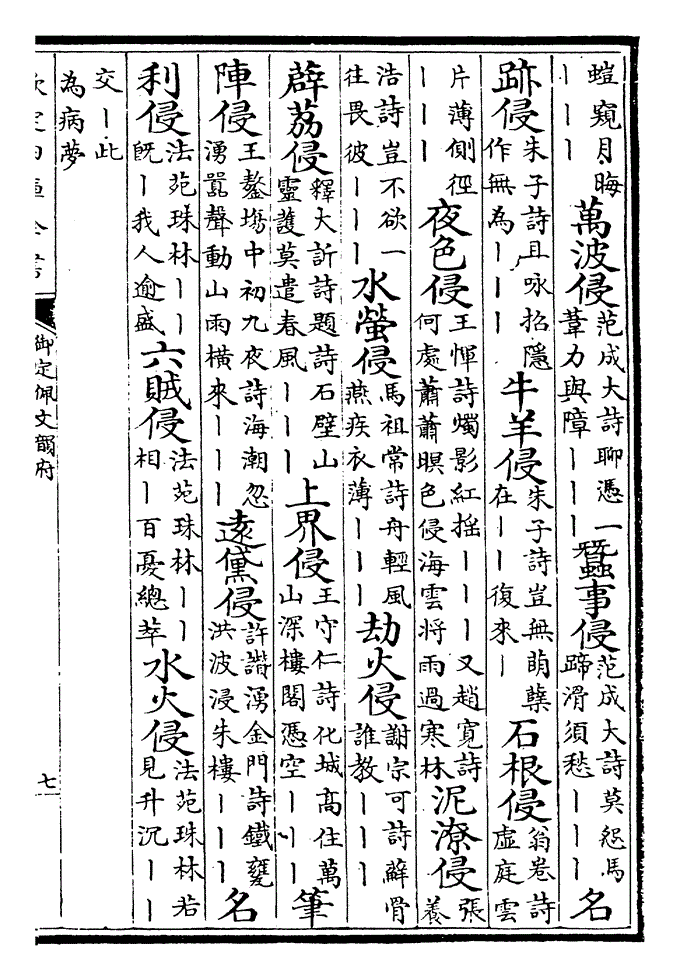 螘窺月晦｜｜｜萬波侵范成大詩聊憑一葦力與障｜｜｜蠶事侵范成大詩莫怨馬蹄滑須愁｜｜｜名
跡侵朱子詩且咏招隠作無為｜｜｜牛羊侵朱子詩豈無萌櫱在｜｜復來｜石根侵翁卷詩虛庭雲
片薄側徑｜｜｜夜色侵王惲詩燭影紅揺｜｜｜又趙寛詩何處蕭蕭暝色侵海雲将雨過寒林泥潦侵張養
浩詩豈不欲一往畏彼｜｜｜水螢侵馬祖常詩舟輕風燕疾衣薄｜｜｜劫火侵謝宗可詩蘚骨誰教｜｜｜
薜荔侵釋大訢詩題詩石壁山靈護莫遣春風｜｜｜上界侵王守仁詩化城髙住萬山深樓閣憑空｜｜｜筆
陣侵王鏊塲中初九夜詩海潮忽湧嚣聲動山雨横來｜｜｜遠黛侵許譛湧金門詩鐵甕洪波浸朱樓｜｜｜名
利侵法苑珠林｜｜既｜我人逾盛六賊侵法苑珠林｜｜相｜百憂總萃水火侵法苑珠林若見升沉｜｜
交｜此為病夢
欽定四庫全書
御定佩文韻府
七